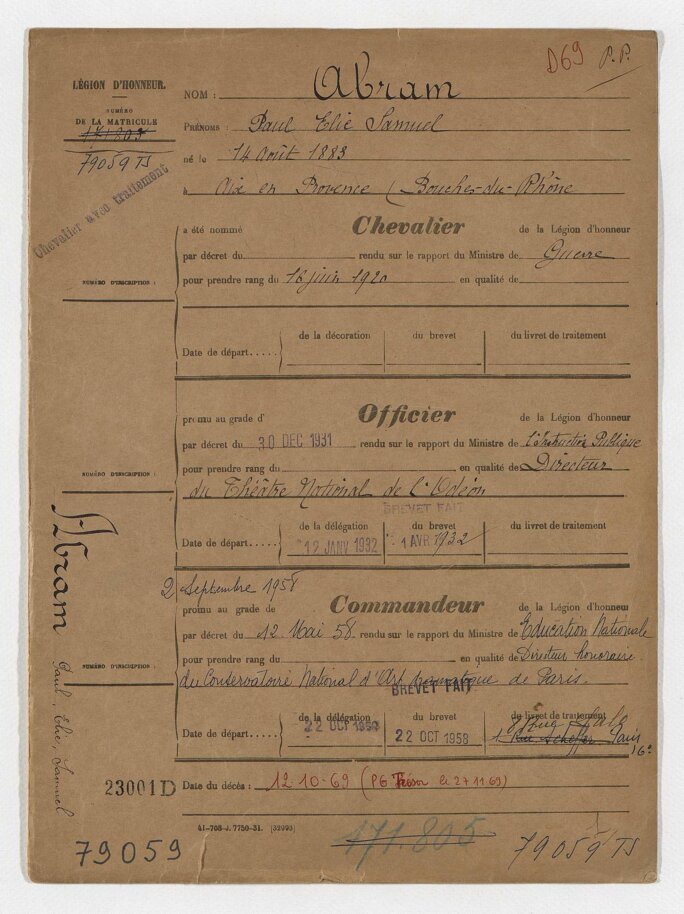 D69 P.P.
LÉGION D'HONNEUR.
NUMÉRO
DE LA MATRICULE
171.805
79059 TS
Chevalier avec traitement
NOM : Abram
PRÉNOMS : Paul Elie Samuel
né le 14 août 1883
à Aix en Provence (Bouches-du-Rhône
a été nommé Chevalier de la Légion d'honneur
par décret du rendu sur le rapport du Ministre de Guerre
pour prendre rang du 16 juin 1920 en qualité de
NUMÉRO D'INSCRIPTION :
de la décoration du brevet du livret de traitement
Date de départ.....
promu au grade d' Officier de la Légion d'honneur
par décret du 30 DEC 1931 rendu sur le rapport du Ministre de l'Instruction Publique
pour prendre rang du en qualité de Directeur
NUMÉRO D'INSCRIPTION :
du Théâtre National de l'Odéon
BREVET FAIT
de la délégation du brevet du livret de traitement
Date de départ..... 12 JANV 1932 1 AVR 1932
2 Septembre 1958
promu au grade de Commandeur de la Légion d'honneur
par décret du 12 Mai 58 rendu sur le rapport du Ministre de Education Nationale
pour prendre rang du en qualité de Directeur honoraire
NUMÉRO D'INSCRIPTION :
du Conservatoire National d'Art dramatique de Paris.
BREVET FAIT
de la délégation du brevet du livret de traitement
Date de départ..... 22 OCT 1958 22 OCT 1958 Rue Scheffer Paris 16e
Abram Paul, Elie, Samuel
23001D
Date du décès : 12-10-69 (PG Trésor le 27.11.69)
41-708-J. 7750-31. [32093]
79059
171.805
79059 TS